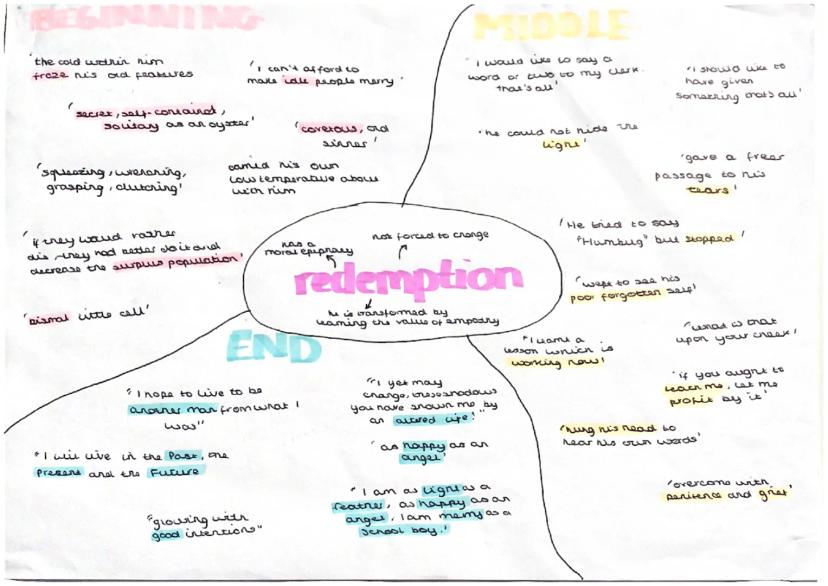 BEGINNING
'the cold within him
froze his old features
'I can't afford to
make idle people merry'
'secret, self-contained,
solitary as an oyster'
'covetous, old
sinner'
'squeezing, wrenching,
grasping, clutching'
carried his own
low temperature about
with him
'if they would rather
die, they had better do it and
decrease the surplus population'
'dismal little cell'
MIDDLE
'I would like to say a
word or two to my clerk.
that's all'
'I should like to
have given
something that's all'
'he could not hide the
light'
'gave a freer
passage to his
tears'
'He tried to say
"Humbug" but stopped'
'wept to see his
poor forgotten self'
'what is that
upon your cheek'
"I learnt a
lesson which is
working now'
'if you aught to
teach me, let me
profit by it'
'hung his head to
hear his own words'
'overcome with
penitence and grief'
has a
moral epiphany
not forced to change
redemption
he is transformed by
learning the value of empathy
END
"I hope to live to be
another man from what I
was"
"I yet may
change, these shadows
you have shown me by
an altered life!"
"I will live in the Past, the
Present and the Future
'as happy as an
angel'
"glowing with
good intentions"
"I am as light as a
feather, as happy as an
angel, I am merry as a
school boy.'